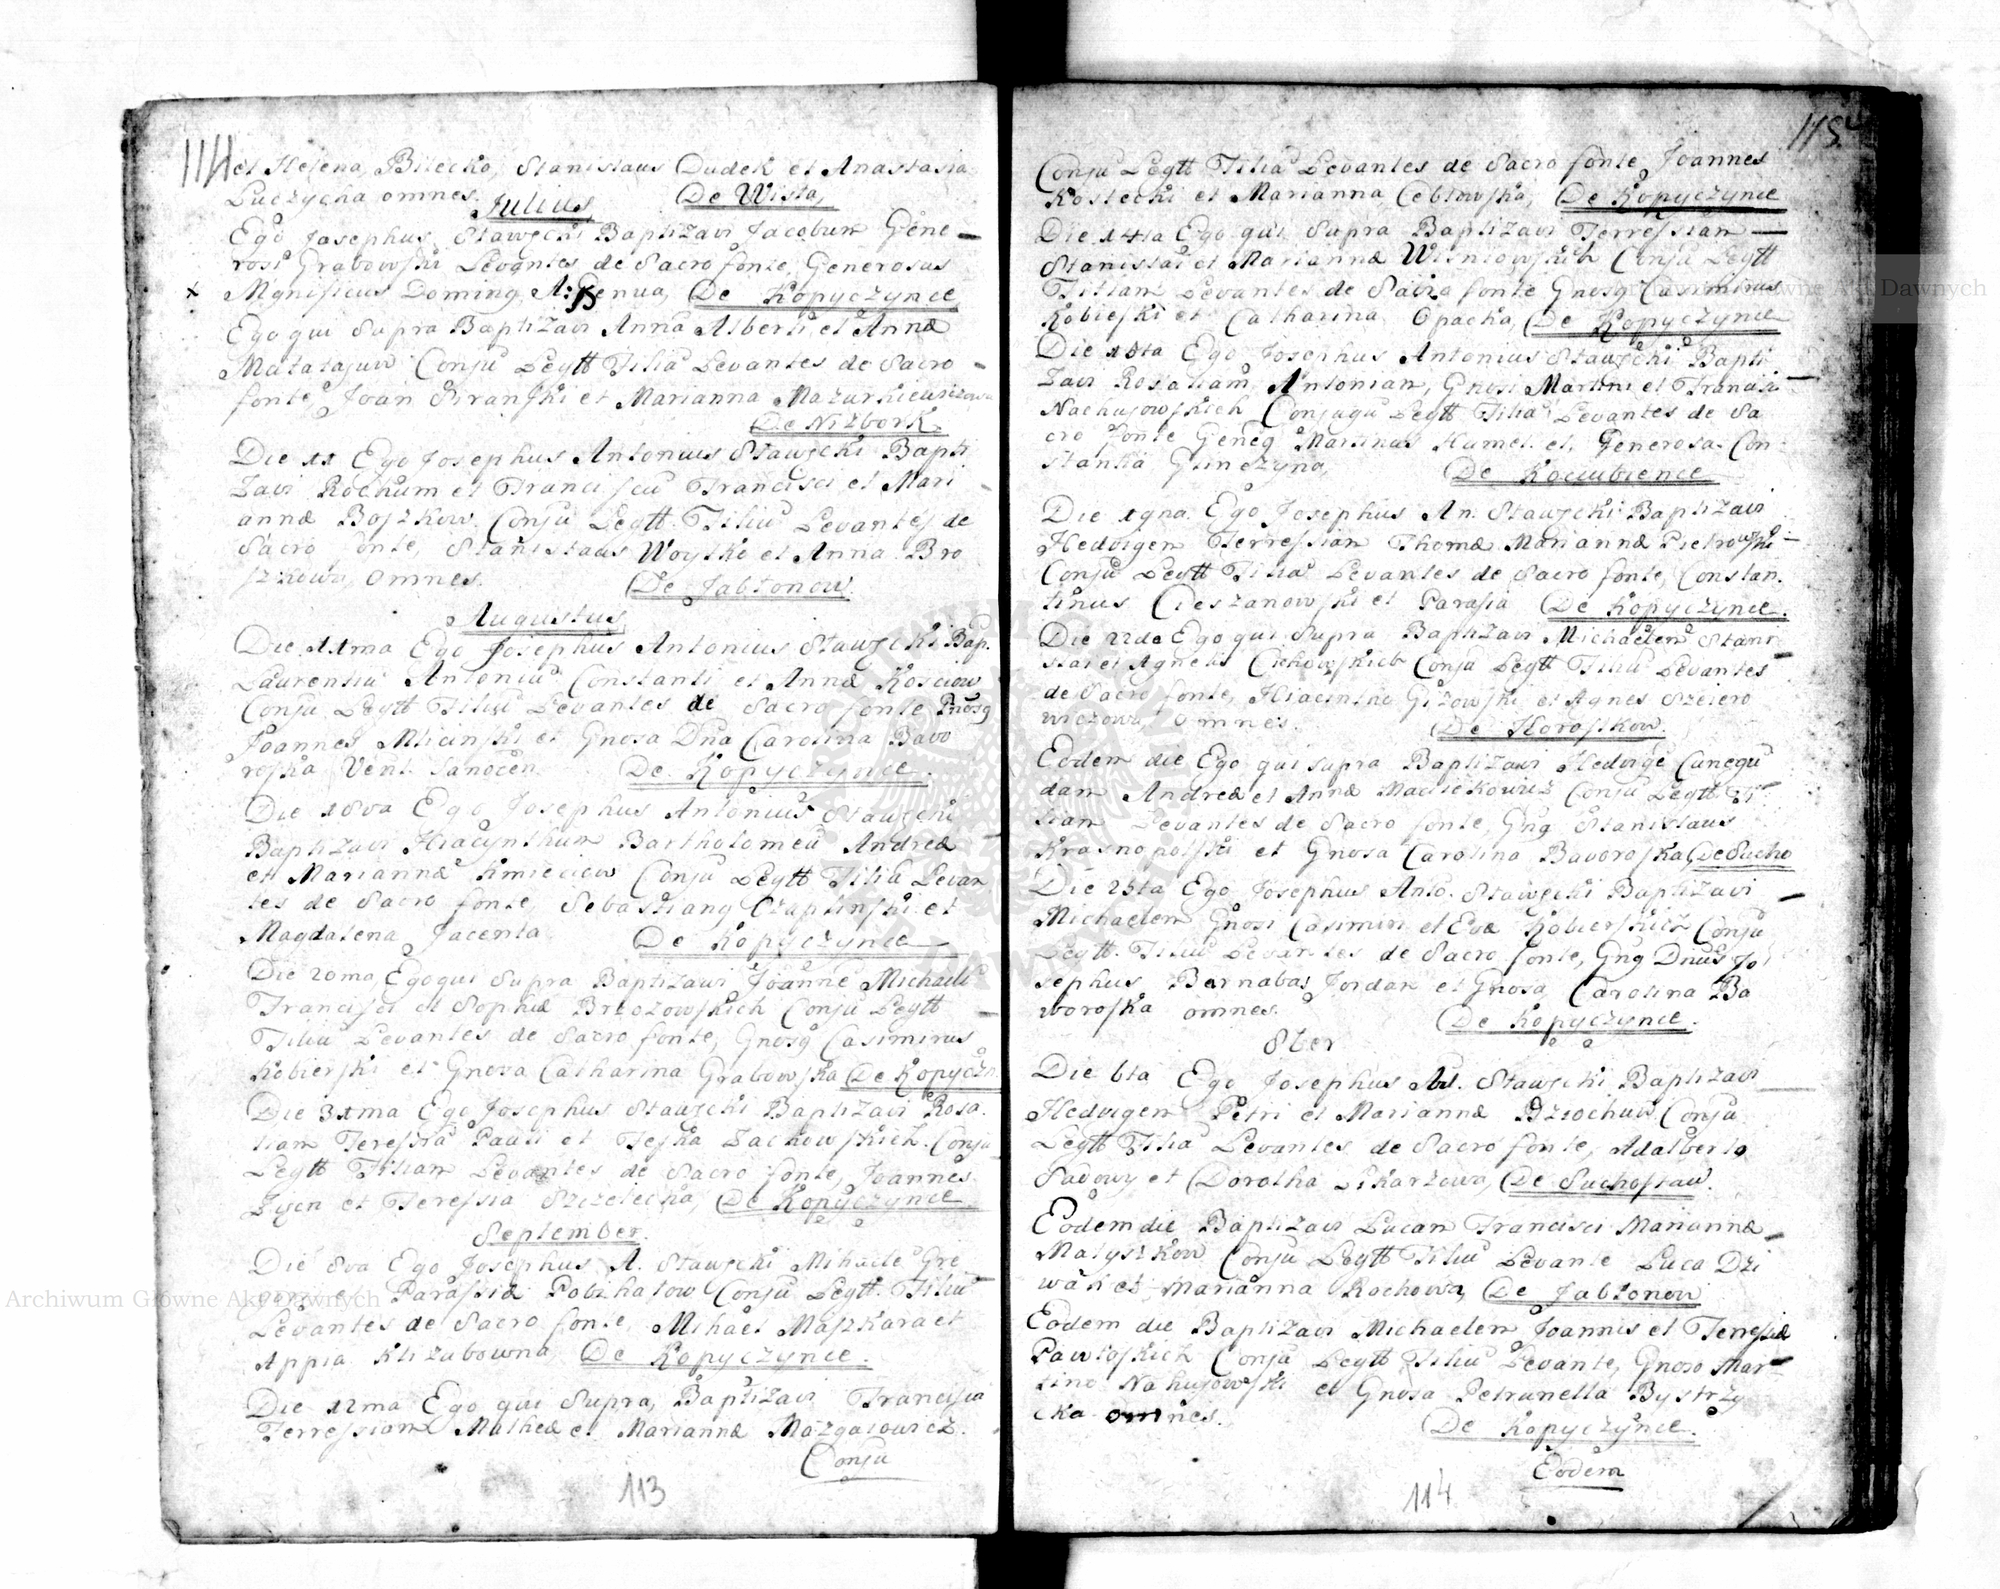 114
et Helena Bilecka, Stanislaus Dudek et Anastasia
Luczycha omnes. De Wista,
Julius
Ego Josephus Stawscki Baptizavi Jacobum Gene
rosi Grabowski Levantes de Sacro fonte, Generosus
De Kopyczynce
Ego qui Supra Baptizavi Anna Alberti et Annæ
Conju Legtt Filia Levantes de Sacro
fonte Joan et Marianna
De Nizbork.
Die 11 Ego Josephus Antonius Stawscki Bapti
zavi Rochum et Franciscu Francisci et Mari
annæ Boszkow Conju Legtt. Filiu Levantes de
Sacro fonte, Stanislaus Woytko et Anna Bro
szkowa, omnes. De Jabłonow.
Augustus
Die 11ma Ego Josephus Antonius Stawscki Bap.
Laurentiu Antoniu Constanti et Annæ Kosciow
Conju Legtt Filiu Levantes de Sacro fonte
Joannes Mlicinski et Gnosa Dna Carolina Bavo
roska De Kopyczynce.
Die 18va Ego Josephus Antonius Stawscki
Baptizavi Hiacynthum Bartholomeu Andreæ
et Mariannæ Kmieciow Conju Legtt Filiu Levan
tes de Sacro fonte, Sebastiang Czaplinski et
Magdalena Jacenta De Kopyczynce
Die 20ma, Ego qui Supra Baptizavi Joanne Michaele
Francisci et Sophiæ Brzozowskich Conju Legtt
Filiu Levantes de Sacro fonte, Gnosg Casimirus
Kobierski et Gnosa Catharina Grabowska De Kopyczn
Die 31ma Ego Josephus Stawscki Baptizavi Rosa.
liam Teressia Pauli et Teska Zachowskich Conju
Legtt Filiam Levantes de Sacro fonte, Joannes
et Teressia Szczelecka, De Kopyczynce
September.
Die 8va Ego Josephus A. Stawscki Mihaele Gre
Parassiæ Pobihalow Conju Legtt. Filiu
Levantes de Sacro fonte, Mihael Maszkara et
Appia Klizabowna, De Kopyczynce.
Die 12ma Ego qui Supra, Baptizavi Francisca
Terressiam Matheæ et Mariannæ Mazgalowicz.
Conju
113
115
Conju Legtt Filia Levantes de Sacro fonte Joannes
Kostecki et Marianna Cebłowska, De Kopyczynce
Die 14ta Ego qui Supra Baptizavi Terressiam
Stanislai et Mariannæ Wisniowskich Conju Legtt
Filiam Levantes de Sacro fonte Gnosg Casimirus
Kobieski et Catharina Opacka, De Kopyczynce
Die 18ta Ego Josephus Antonius Stawscki Bapti
zavi Rosaliam Antoniam, Gnosi Martini et Francis
Nachujowskich Conjugu Legtt Filia Levantes de Sa
cro fonte Geneg Martinus Humel. et. Generosa Con
stantia De Kociubience
Die 19na. Ego Josephus An. Stawscki Baptizavi
Hedvigem Terressiam Thomæ Mariannæ Pietrowski
Conju Legtt Filia Levantes de Sacro fonte, Constan.
tinus Cieszanowski et Parasia De Kopyczynce.
Die 22de Ego qui Supra Baptizavi Michaelem Stani
slai et Agnetis Cichowskich Conju Legtt Filiu Levantes
de Sacro fonte, Hiacinthg Gizowski et Agnes Szeiero
wiczowa, omnes. De Horostkow
Eodem die Ego qui supra Baptizavi Hedvige Cunegu
dam Andreæ et Annæ Maciekowicz Conju Legtt Fi
liam Levantes de Sacro fonte, Gng Stanislaus
Krasnopolski et Gnosa Carolina Bavoroska, De Sucho
Die 25ta Ego Josephus Anto. Stawscki Baptizavi
Michaelem Gnosi Casimiri et Evæ Kobierskich Conju
Legtt. Filiu Levantes de Sacro fonte, Gng Dnus Jo
sephus Barnabas Jordan et Gnosa Carolina Ba
woroska omnes. De Kopyczynce.
8ber
Die 6ta Ego Josephus An. Stawscki Baptizavi
Hedvigem Petri et Mariannæ Dziochuw Conju
Legtt Filia Levantes de Sacro fonte, Adalberto
Sadowy et Dorotha Likarzowa, De Suchostaw.
Eodem die Baptizavi Lucam Francisci Mariannæ
Malyszkow Conju Legtt Filiu Levante Luca Dzi
wak et Marianna Rochowa, De Jabłonow
Eodem die Baptizavi Michaelem Joannis et Teressiæ
Pawłoskich Conju Legtt Filiu Levante, Gnoso Mar
tino Nahujowski et Gnosa Petrunella Bystrzy
cka omnes.
De Kopyczynce.
Eodem
114
Archiwum Główne Akt Dawnych
Archiwum Główne Akt Dawnych